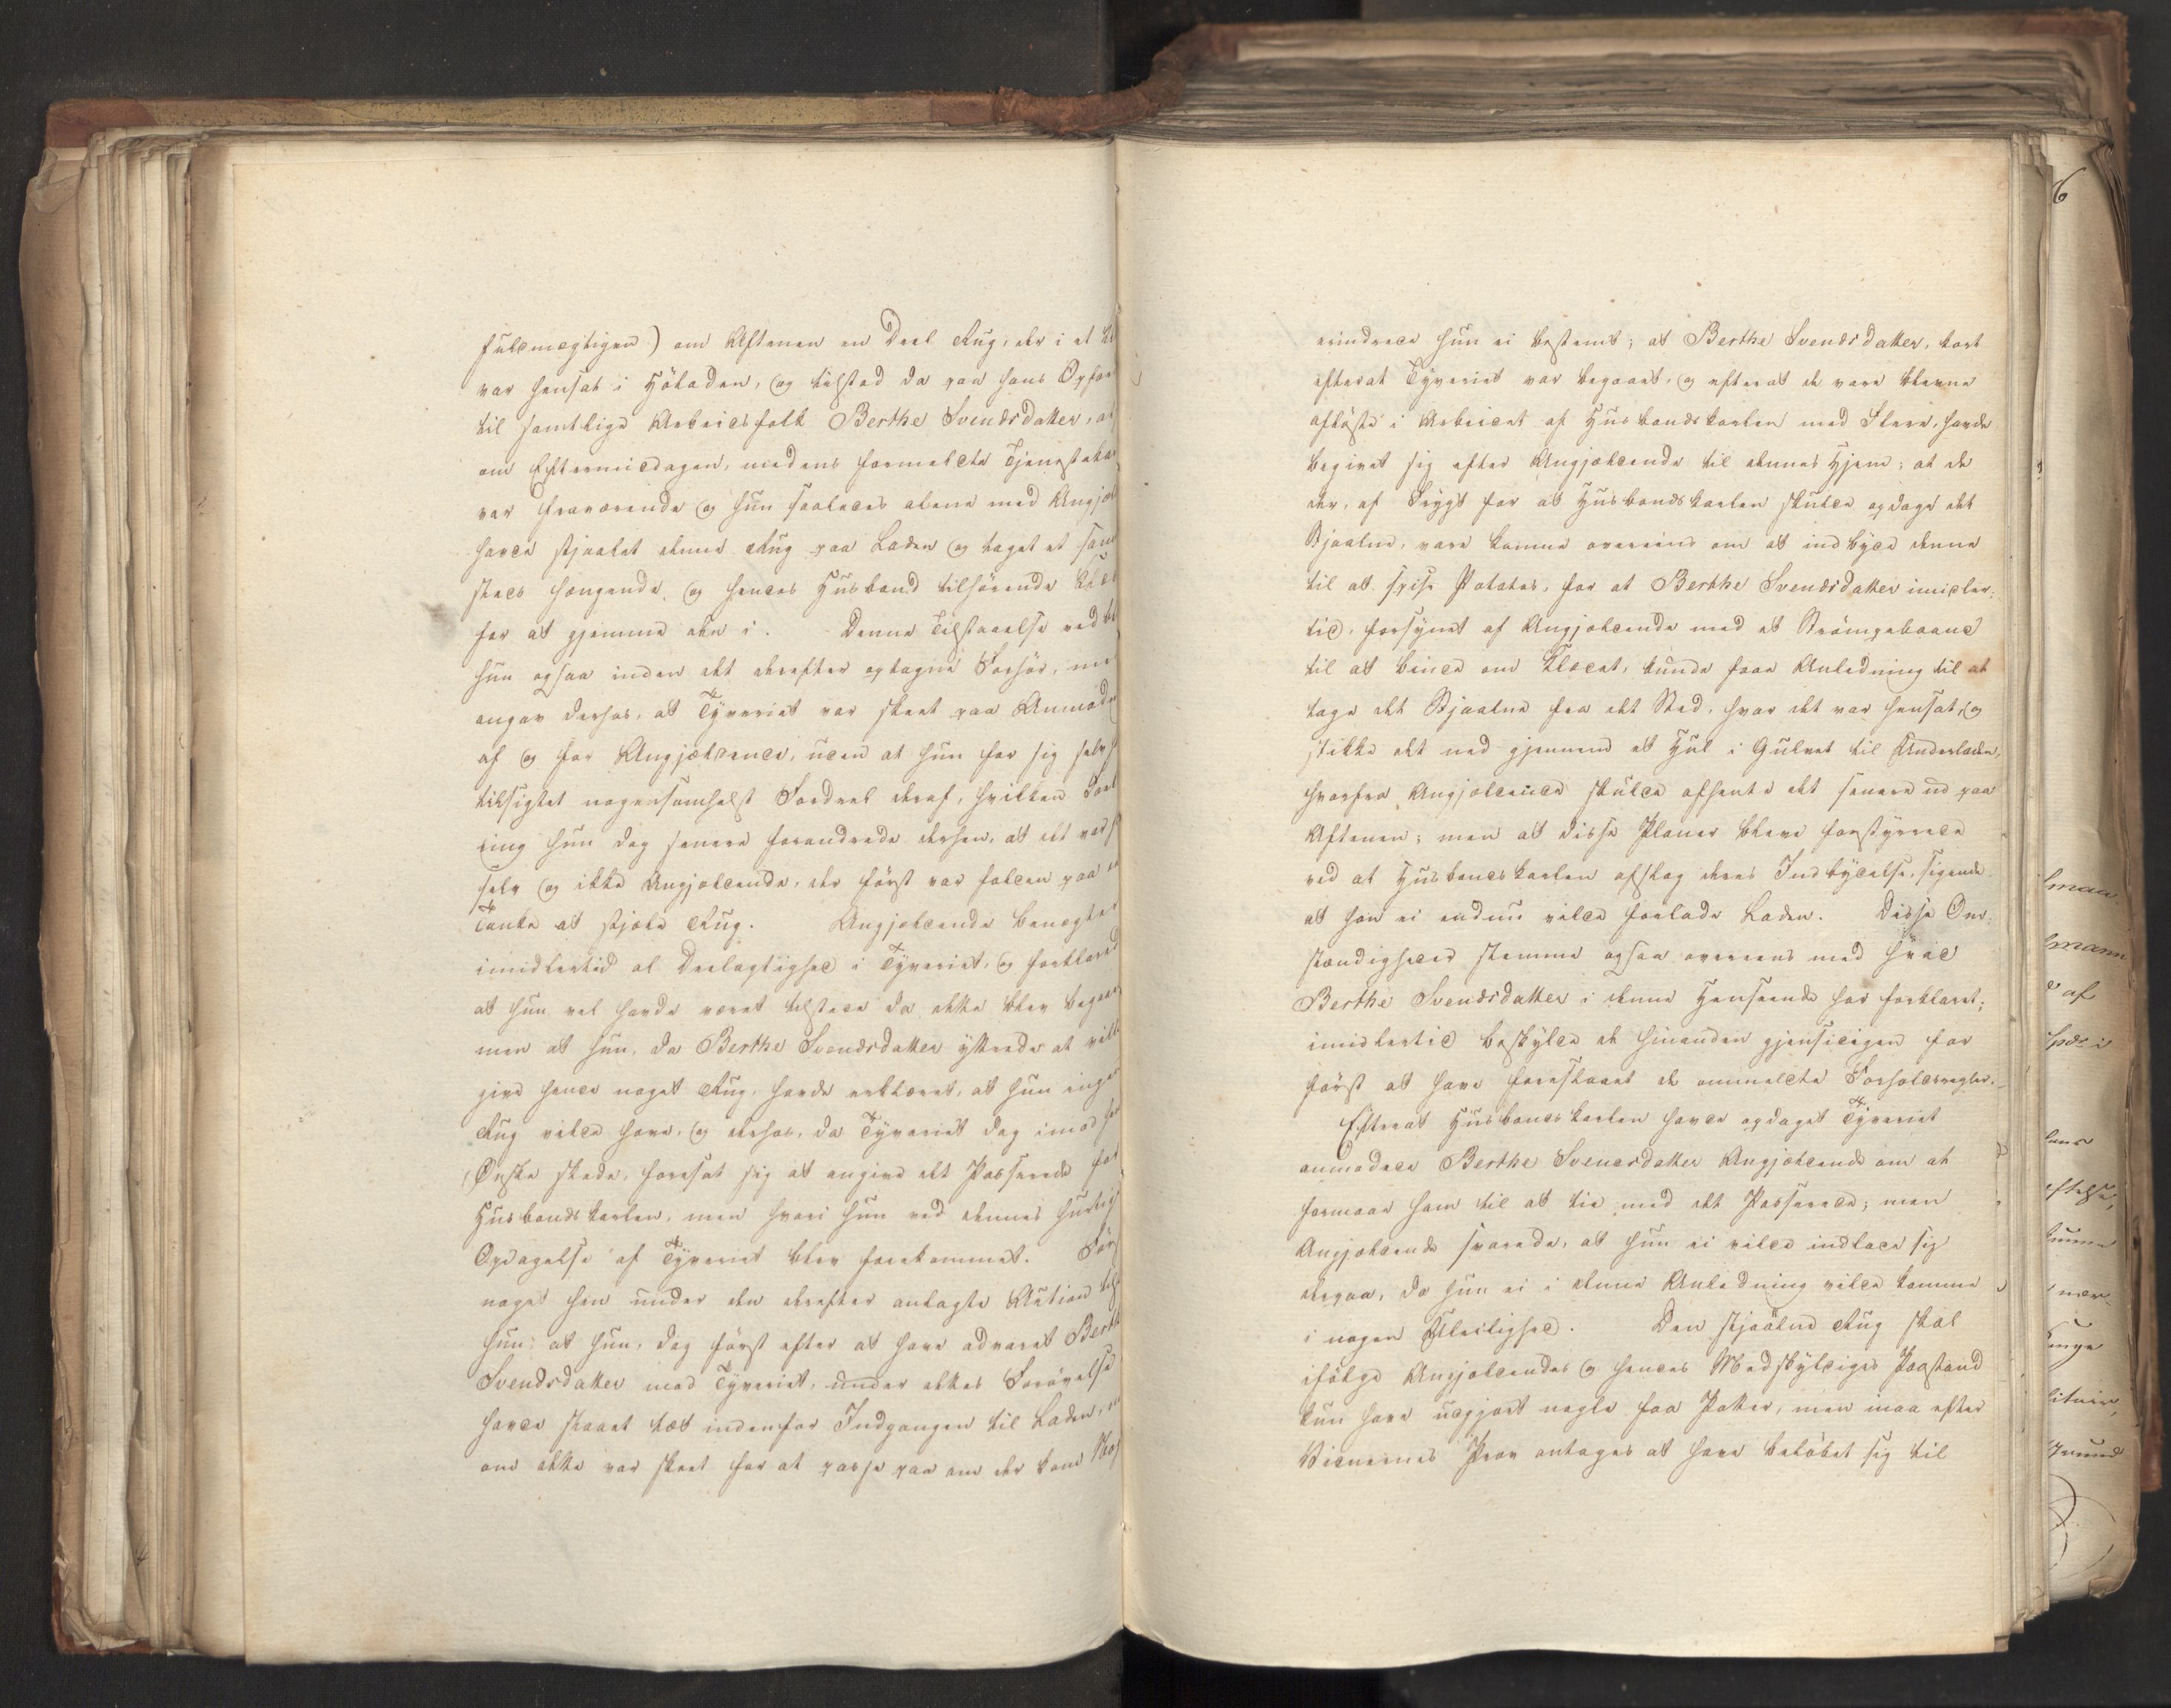 fuldmægtigen) om Aftenen en Deel Rug, der i et
var hensat i Höladen, og tilstod da paa hans Opfor
til samtlige Arbeidsfolk Berthe Svendsdatter, at
om Eftermiddagen, medens formeldte Tjenestekar
var fraværende og hun saaledes alene med Angjel
havde stjaalet denne Rug paa Laden og taget et sam
steds hængende, og hendes Husbond tilhörende Klæd
for at gjemme den i. Denne Tilstaaelse ved
hun ogsaa inden det derefter optagne Forhör, me
angav derhos, at Tyveriet var skeet paa Anmodn
af og for Angjældende, uden at hun for sig selv
tilsigtet nogensomhelst Fordeel deraf, hvilken Forkl
ring hun dog senere forandrede derhen, at det var
selv og ikke Angjeldende, der först var falden paa
Tanke at stjele Rug. Angjeldende benægter
imidlertid al Deelagtighed i Tyveriet, og forklared
at hun vel havde været tilstede da dette blev begaae
men at hun, da Berthe Svendsdatter yttrede at ville
give hende noget Rug, havde erklæret, at hun ingen
Rug vilde have, og derhos, da Tyveriet dog imod
Önske skede, foresat sig at angive det Passerede for
Husbondskarlen, men hvori hun ved dennes hurtig
Opdagelse af Tyveriet blev forekommet. För
noget hen under den derefter anlagte Action
hun: at hun, dog först efter at have advaret Berth
Svendsdatter mod Tyveriet, under dettes Forövelse
havde staaet tæt indenfor Indgangen til Laden,
om dette var skeet for at passe paa om der kom
erindrede hun ei bestemt; at Berthe Svendsdatter, kort
efterat Tyveriet var begaaet, og efterat de vare blevne
aflöste i Arbeidet af Husbondskarlen med Flere, havde
begivet sig efter Angjeldende til dennes Hjem; at de
der, af Frygt for at Husbondskarlen skulde opdage det
Stjaalne, vare komne overeens om at indbyde denne
til at spise Potatos, for at Berthe Svendsdatter imidler-
tid, forsynet af Angjeldende med et Strömpebaand
til at binde om Klædet, kunde faae Anledning til at
tage det Stjaalne fra det Sted, hvor det var hensat, og
stikke det ned gjennem et Hul i Gulvet til Underladen,
hvorfra Angjeldende skulde afhente det senere ud paa
Aftenen; men at disse Planer bleve forstyrrede
ved at Husbondskarlen afslog deres Indbydelse, sigende
at han ei endnu vilde forlade Laden. Disse Om-
stændigheder stemme ogsaa overeens med hvad
Berthe Svendsdatter i denne Henseende har forklaret;
imidlertid beskylde de hinanden gjensidigen for
först at have foreslaaet de ommeldte Forholdsregler.
Efterat Husbondskarlen havde opdaget Tyveriet
anmodede Berthe Svendsdatter Angjeldende om at
formaae ham til at tie med det Passerede; men
Angjeldende svarede, at hun ei vilde indlade sig
derpaa, da hun ei i denne Anledning vilde komme
i nogen Uleilighed. Den stjaalne Rug skal
ifölge Angjeldendes og hendes Medskyldiges Paastand
kun have udgjort nogle faa Potter, men maa efter
Vidnernes Prov antages at have belöbet sig til